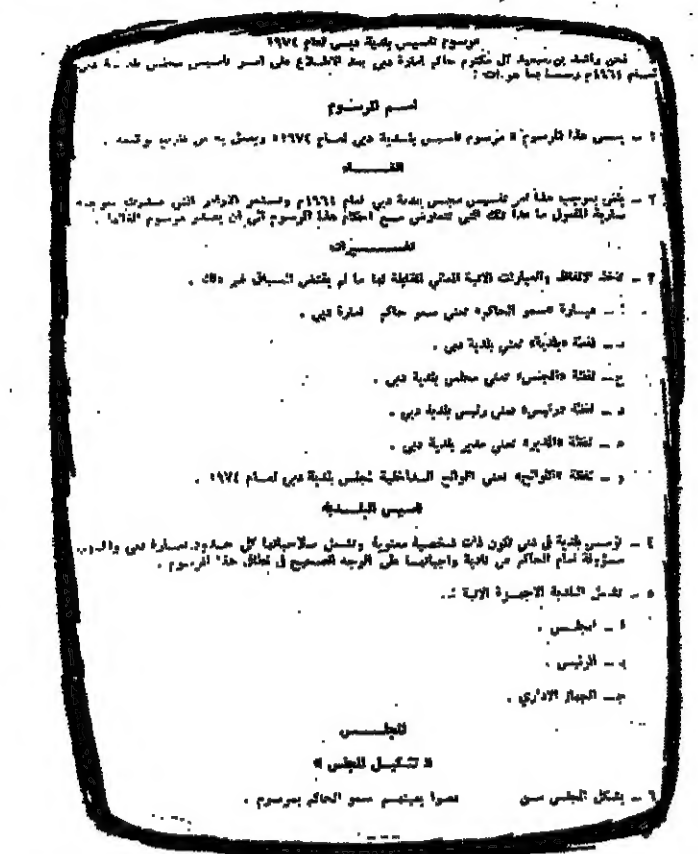 مرسوم تأسيس بلدية دبي لعام ١٩٧٤
نحن راشد بن سعيد آل مكتوم حاكم إمارة دبي بعد الاطلاع على أمر تأسيس مجلس بلدية دبي
لعام ١٩٦٤م رسمنا بما هو آت :
اسم المرسوم
١ ــ يسمى هذا المرسوم « مرسوم تأسيس بلدية دبي لعام ١٩٧٤» ويعمل به من تاريخ توقيعه .
الغاء
٢ ــ يلغى بموجب هذا أمر تأسيس مجلس بلدية دبي لعام ١٩٦٤م وتستمر الأوامر التي صدرت بموجبه
سارية المفعول ما عدا تلك التي تتعارض مع أحكام هذا المرسوم الى أن يصدر مرسوم بالغائها .
تفسيرات
٣ ــ تتخذ الالفاظ والعبارات الآتية المعاني المقابلة لها ما لم يقتض السياق غير ذلك .
أ ــ عبارة «سمو الحاكم» تعني سمو حاكم إمارة دبي .
ب ــ لفظة «بلدية» تعني بلدية دبي .
ج ــ لفظة «المجلس» تعني مجلس بلدية دبي .
د ــ لفظة «رئيس» تعني رئيس بلدية دبي .
ه ــ لفظة «المدير» تعني مدير بلدية دبي .
و ــ لفظة «اللوائح» تعني اللوائح الداخلية لمجلس بلدية دبي لعام ١٩٧٤ .
تأسيس البلدية
٤ ــ تؤسس بلدية في دبي تكون ذات شخصية معنوية وتشمل صلاحياتها كل حدود إمارة دبي وتكون
مسؤولة أمام الحاكم عن تأدية واجباتها على الوجه الصحيح في نطاق هذا المرسوم .
٥ ــ تشمل البلدية الاجهزة الآتية :ــ
أ ــ المجلس .
ب ــ الرئيس .
جــ الجهاز الاداري .
المجلس
« تشكيل المجلس »
٦ ــ يشكل المجلس من عضوا يعينهم سمو الحاكم بمرسوم .